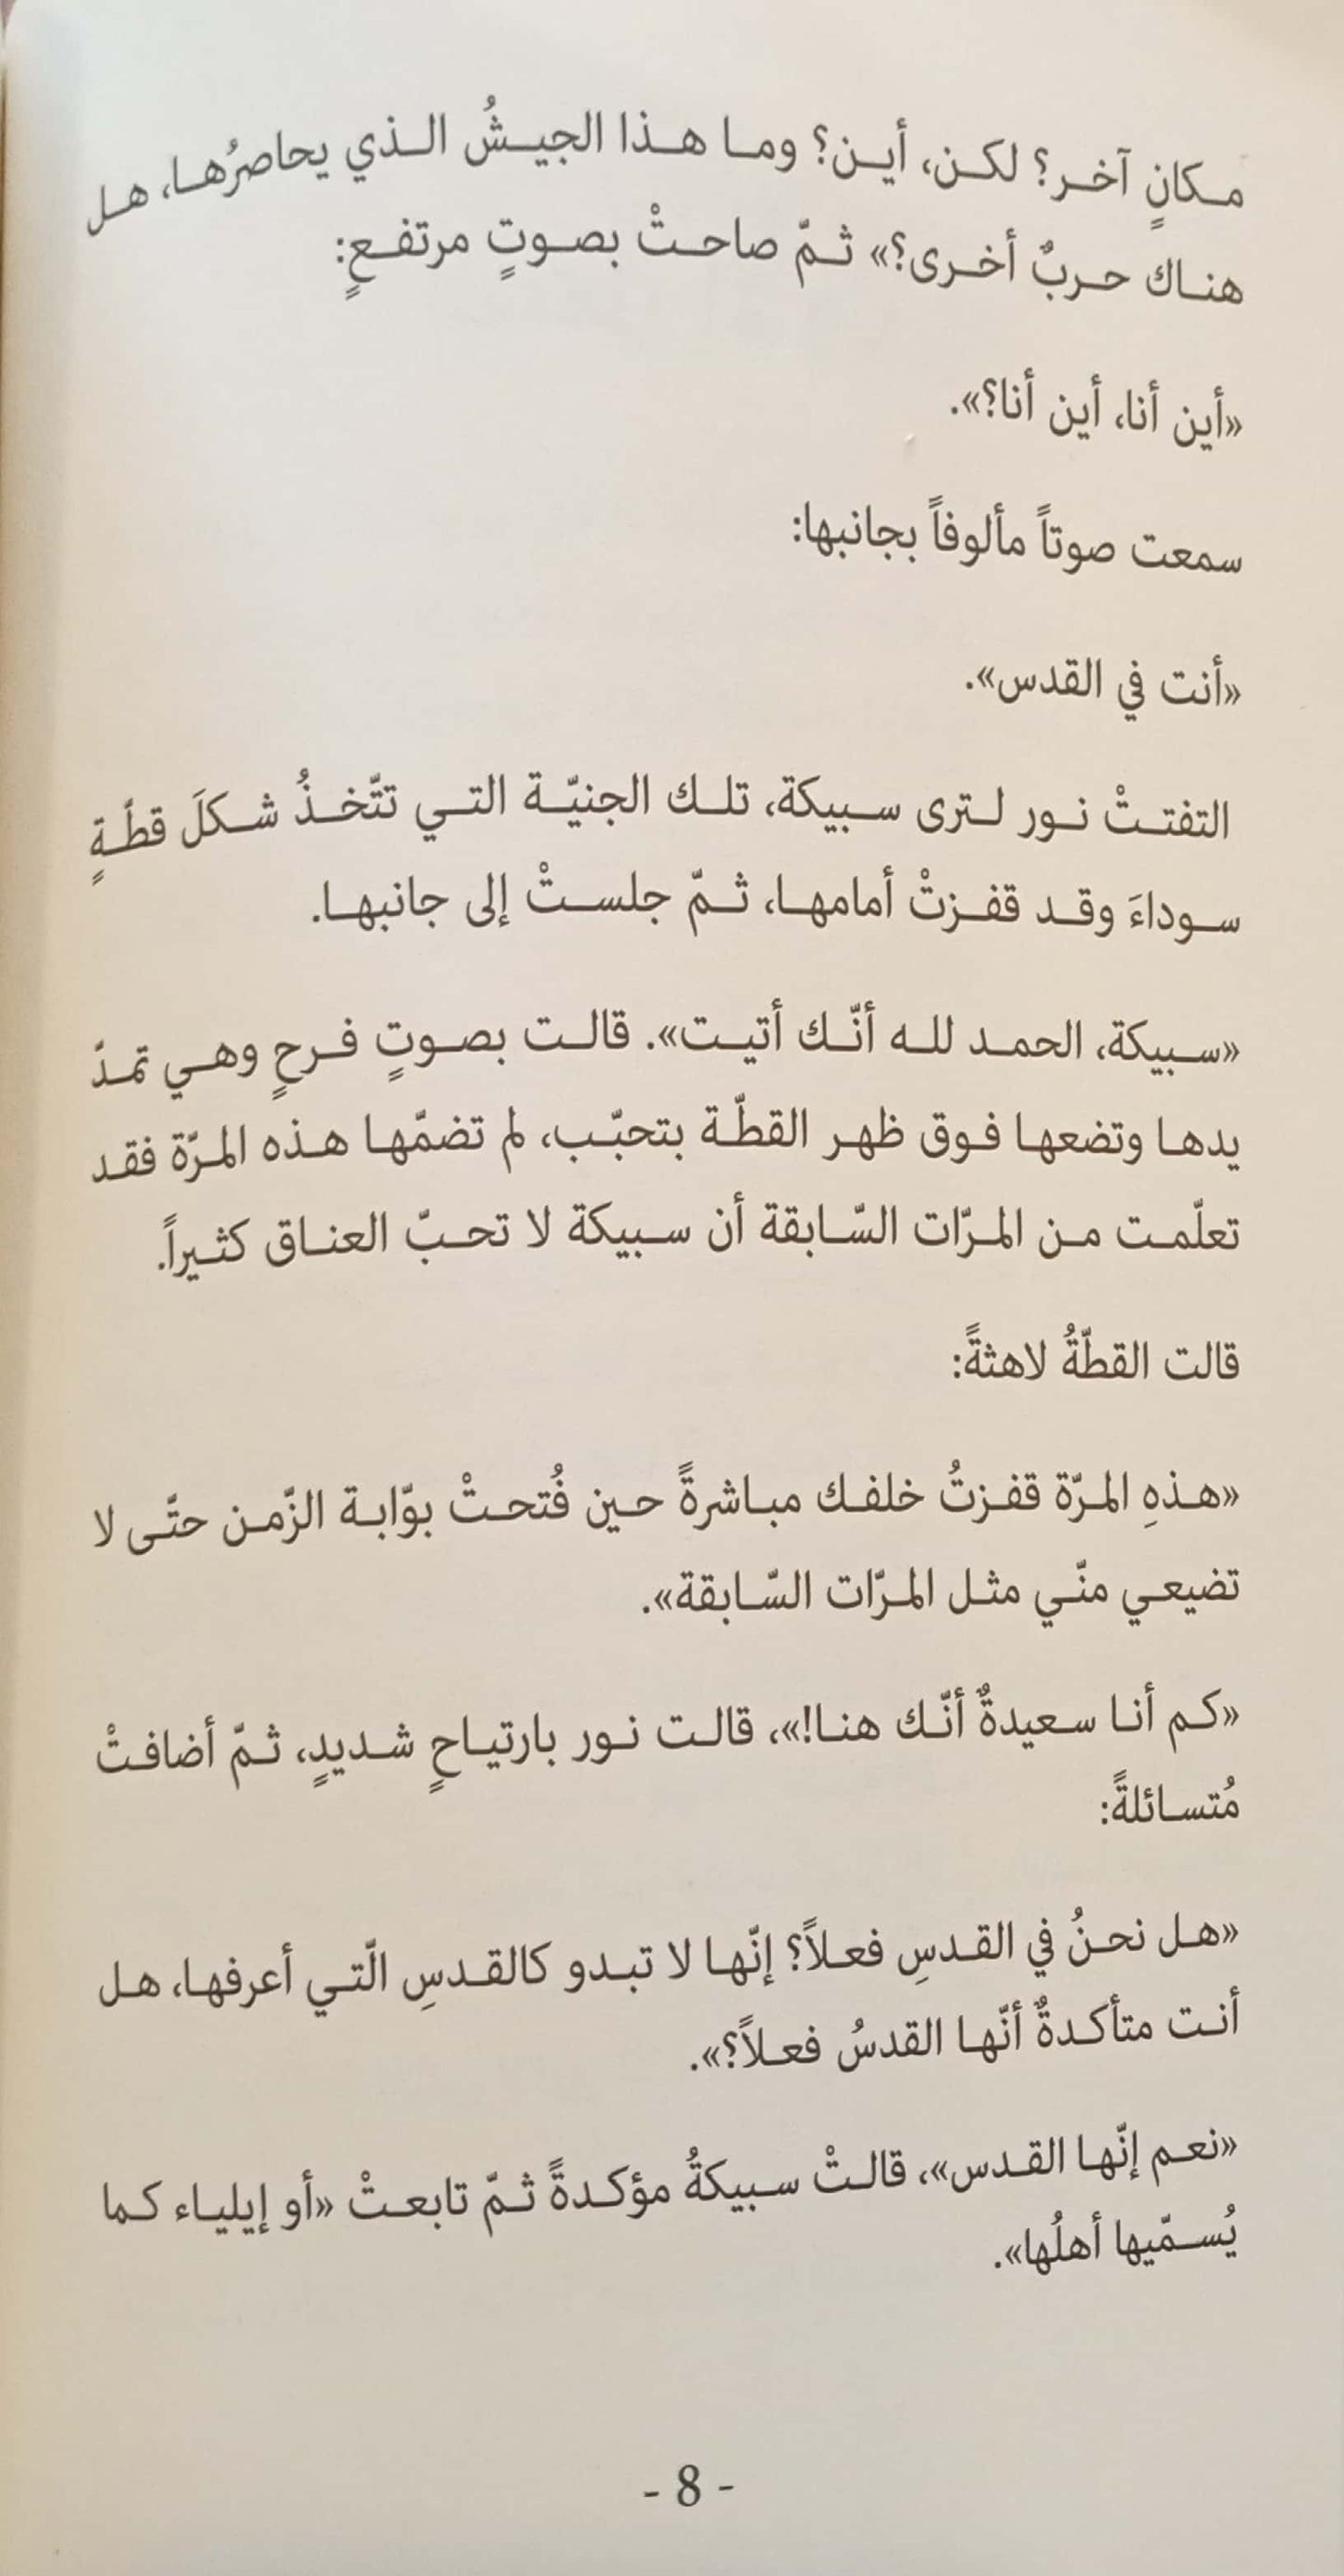 مكانٍ آخر؟ لكن، أين؟ وما هذا الجيشُ الذي يحاصرُها، هل
هناك حربٌ أخرى؟» ثمّ صاحتْ بصوتٍ مرتفعٍ:
«أين أنا، أين أنا؟».
سمعت صوتاً مألوفاً بجانبها:
«أنت في القدس».
التفتتْ نور لترى سبيكة، تلك الجنيّة التي تتّخذُ شكلَ قطّةٍ
سوداءَ وقد قفزتْ أمامها، ثمّ جلستْ إلى جانبها.
«سبيكة، الحمد لله أنّك أتيت». قالت بصوتٍ فرحٍ وهي تمدّ
يدها وتضعها فوق ظهر القطّة بتحبّب، لم تضمّها هذه المرّة فقد
تعلّمت من المرّات السّابقة أن سبيكة لا تحبّ العناق كثيراً.
قالت القطّةُ لاهثةً:
«هذهِ المرّة قفزتُ خلفك مباشرةً حين فُتحتْ بوّابة الزّمن حتّى لا
تضيعي منّي مثل المرّات السّابقة».
«كم أنا سعيدةٌ أنّك هنا!»، قالت نور بارتياحٍ شديدٍ، ثمّ أضافتْ
مُتسائلةً:
«هل نحنُ في القدسِ فعلاً؟ إنّها لا تبدو كالقدسِ الّتي أعرفها، هل
أنت متأكدةٌ أنّها القدسُ فعلاً؟».
«نعم إنّها القدس»، قالتْ سبيكةُ مؤكدةً ثمّ تابعتْ «أو إيلياء كما
يُسمّيها أهلُها».
- 8 -